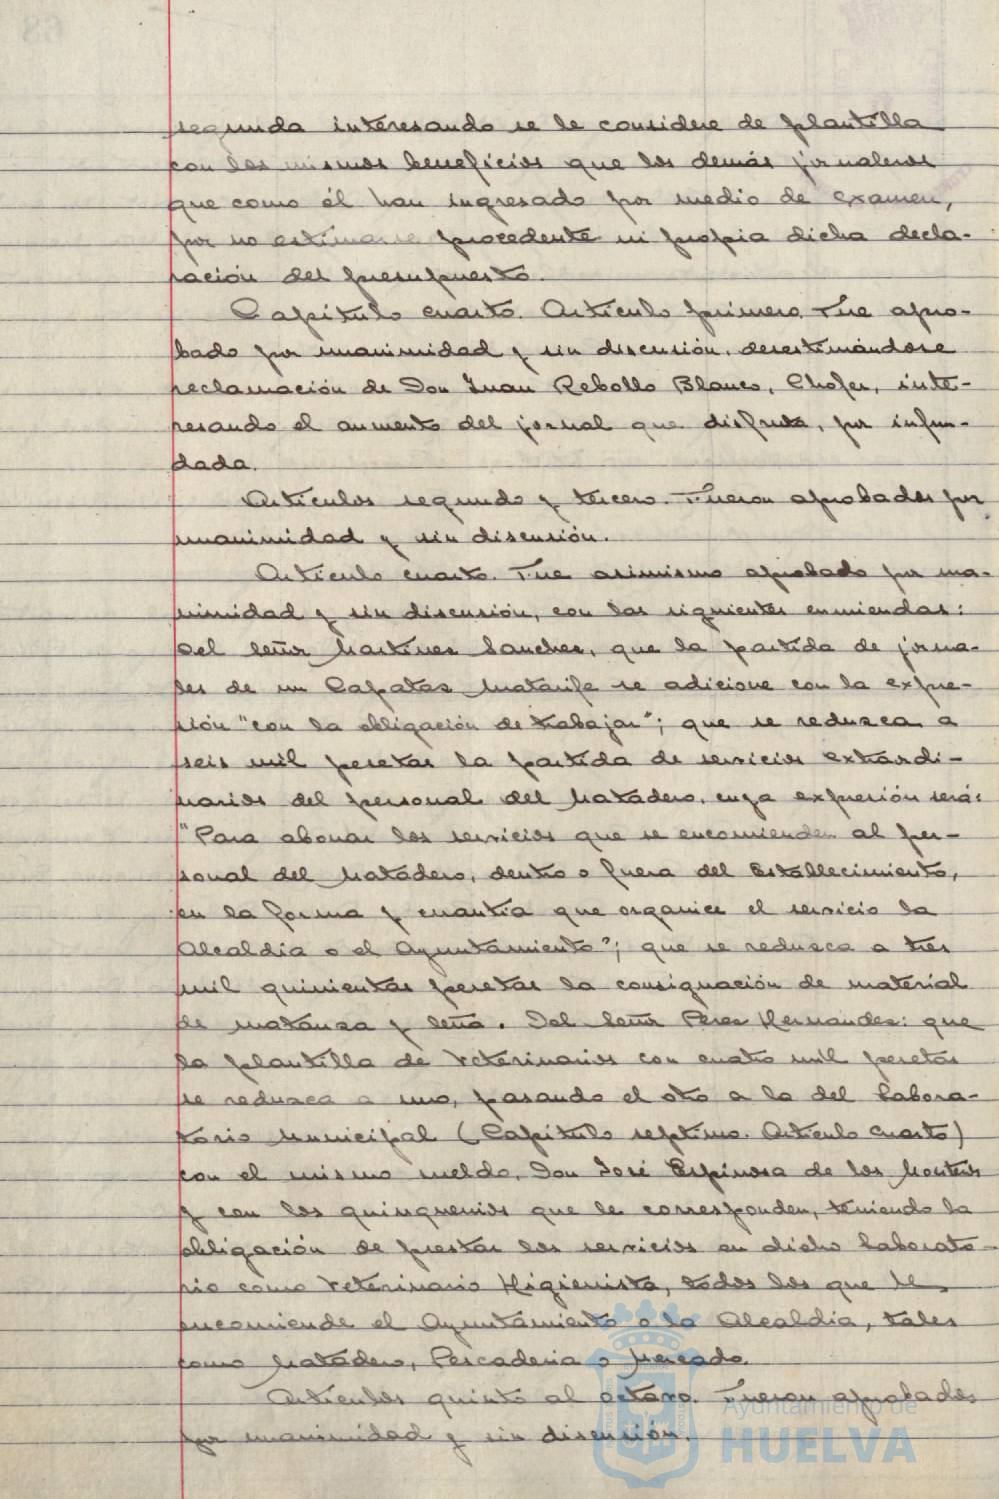 segunda interesando se le considere de plantilla
con los mismos beneficios que los demás jornaleros
que como él han ingresado por medio de examen,
por no estimarse procedente ni propia dicha decla-
ración del presupuesto.
Capítulo cuarto. Artículo primero. Fue apro-
bado por unanimidad y sin discusión, desestimándose
reclamación de Don Juan Rebollo Blanco, Chofer, inte-
resando el aumento del jornal que disfruta, por infun-
dada.
Artículos segundo y tercero. Fueron aprobados por
unanimidad y sin discusión.
Artículo cuarto. Fue asimismo aprobado por una-
nimidad y sin discusión, con las siguientes enmiendas:
Del señor Martínez Sanchez, que la partida de jorna-
les de un Capataz Matarife se adicione con la expre-
sión "con la obligación de trabajar"; que se reduzca a
seis mil pesetas la partida de servicios extraordi-
narios del personal del Matadero, cuya expresión será:
"Para abonar los servicios que se encomienden al per-
sonal del Matadero, dentro o fuera del Establecimiento,
en la forma y cuantía que organice el servicio la
Alcaldía o el Ayuntamiento"; que se reduzca a tres
mil quinientas pesetas la consignación de material
de matanza y leña. Del señor Perez Hernandez: que
la plantilla de Veterinarios con cuatro mil pesetas
se reduzca a uno, pasando el otro a la del Labora-
torio Municipal (Capítulo septimo. Artículo cuarto)
con el mismo sueldo, Don José Espinosa de los Monteros
y con los quinquenios que le corresponden, teniendo la
obligación de prestar los servicios en dicho Laborato-
rio como Veterinario Higienista, todos los que le
encomiende el Ayuntamiento o la Alcaldía, tales
como Matadero, Pescadería o Mercado.
Artículos quinto al octavo. Fueron aprobados
por unanimidad y sin discusión.
Ayuntamiento de
HUELVA